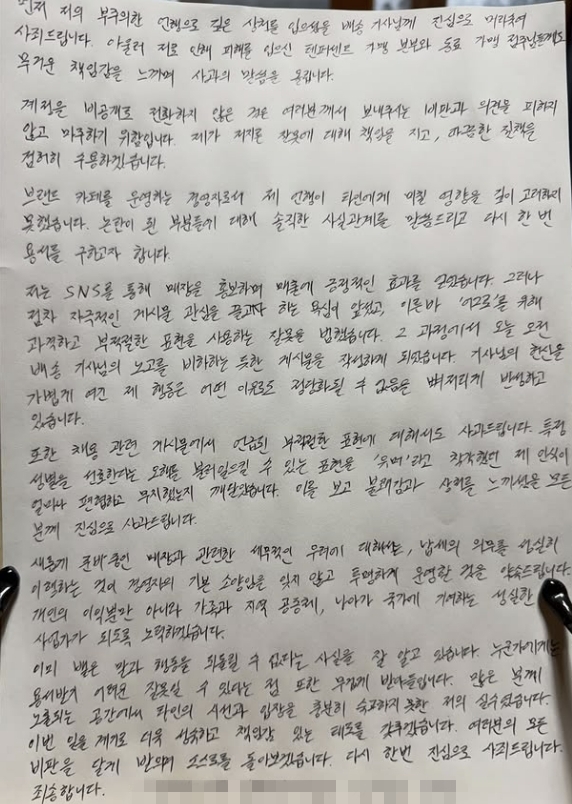 먼저 저의 부주의한 언행으로 깊은 상처를 입으셨을 배송 기사님께 진심으로 머리숙여
사죄드립니다. 아울러 저로 인해 피해를 입으신 텐퍼센트 가맹 본부와 동료 가맹 점주님들께도
무거운 책임감을 느끼며 사과의 말씀을 올립니다.
계정을 비공개로 전환하지 않은 것은 여러분께서 보내주시는 비판과 의견을 피하지
않고 마주하기 위함입니다. 제가 저지른 잘못에 대해 책임을 지고, 따끔한 질책을
겸허히 수용하겠습니다.
브랜드 카페를 운영하는 경영자로서 제 언행이 타인에게 미칠 영향을 깊이 고려하지
못했습니다. 논란이 된 부분들에 대해 솔직한 사실관계를 말씀드리고 다시 한 번
용서를 구하고자 합니다.
저는 SNS를 통해 매장을 홍보하며 매출에 긍정적인 효과를 얻었습니다. 그러나
점차 자극적인 게시물로 관심을 끌고자 하는 욕심이 앞섰고, 이른바 '어그로'를 위해
과격하고 부적절한 표현을 사용하는 잘못을 범했습니다. 그 과정에서 오늘 오전
배송 기사님의 노고를 비하하는 듯한 게시물을 작성하게 되었습니다. 기사님의 헌신을
가볍게 여긴 제 행동은 어떤 이유로도 정당화될 수 없음을 뼈저리게 반성하고
있습니다.
또한 채용 관련 게시물에서 언급된 부적절한 표현에 대해서도 사과드립니다. 특정
성별을 선호한다는 오해를 불러일으킬 수 있는 표현을 '유머'라고 착각했던 제 인식이
얼마나 편협하고 무지했는지 깨달았습니다. 이를 보고 불쾌감과 상처를 느끼셨을 모든
분께 진심으로 사과드립니다.
새롭게 준비 중인 매장과 관련한 세무적인 우려에 대해서는, 납세의 의무를 성실히
이행하는 것이 경영자의 기본 소양임을 잊지 않고 투명하게 운영할 것을 약속드립니다.
개인의 이익뿐만 아니라 가족과 지역 공동체, 나아가 국가에 기여하는 성실한
사업가가 되도록 노력하겠습니다.
이미 뱉은 말과 행동을 되돌릴 수 없다는 사실을 잘 알고 있습니다. 누군가에게는
용서받기 어려운 잘못일 수 있다는 점 또한 무겁게 받아들입니다. 많은 분께
노출되는 공간에서 타인의 시선과 입장을 충분히 숙고하지 못한 저의 실수였습니다.
이번 일을 계기로 더욱 성숙하고 책임감 있는 태도를 갖추겠습니다. 여러분의 모든
비판을 달게 받으며 스스로를 돌아보겠습니다. 다시 한번 진심으로 사죄드립니다.
죄송합니다.